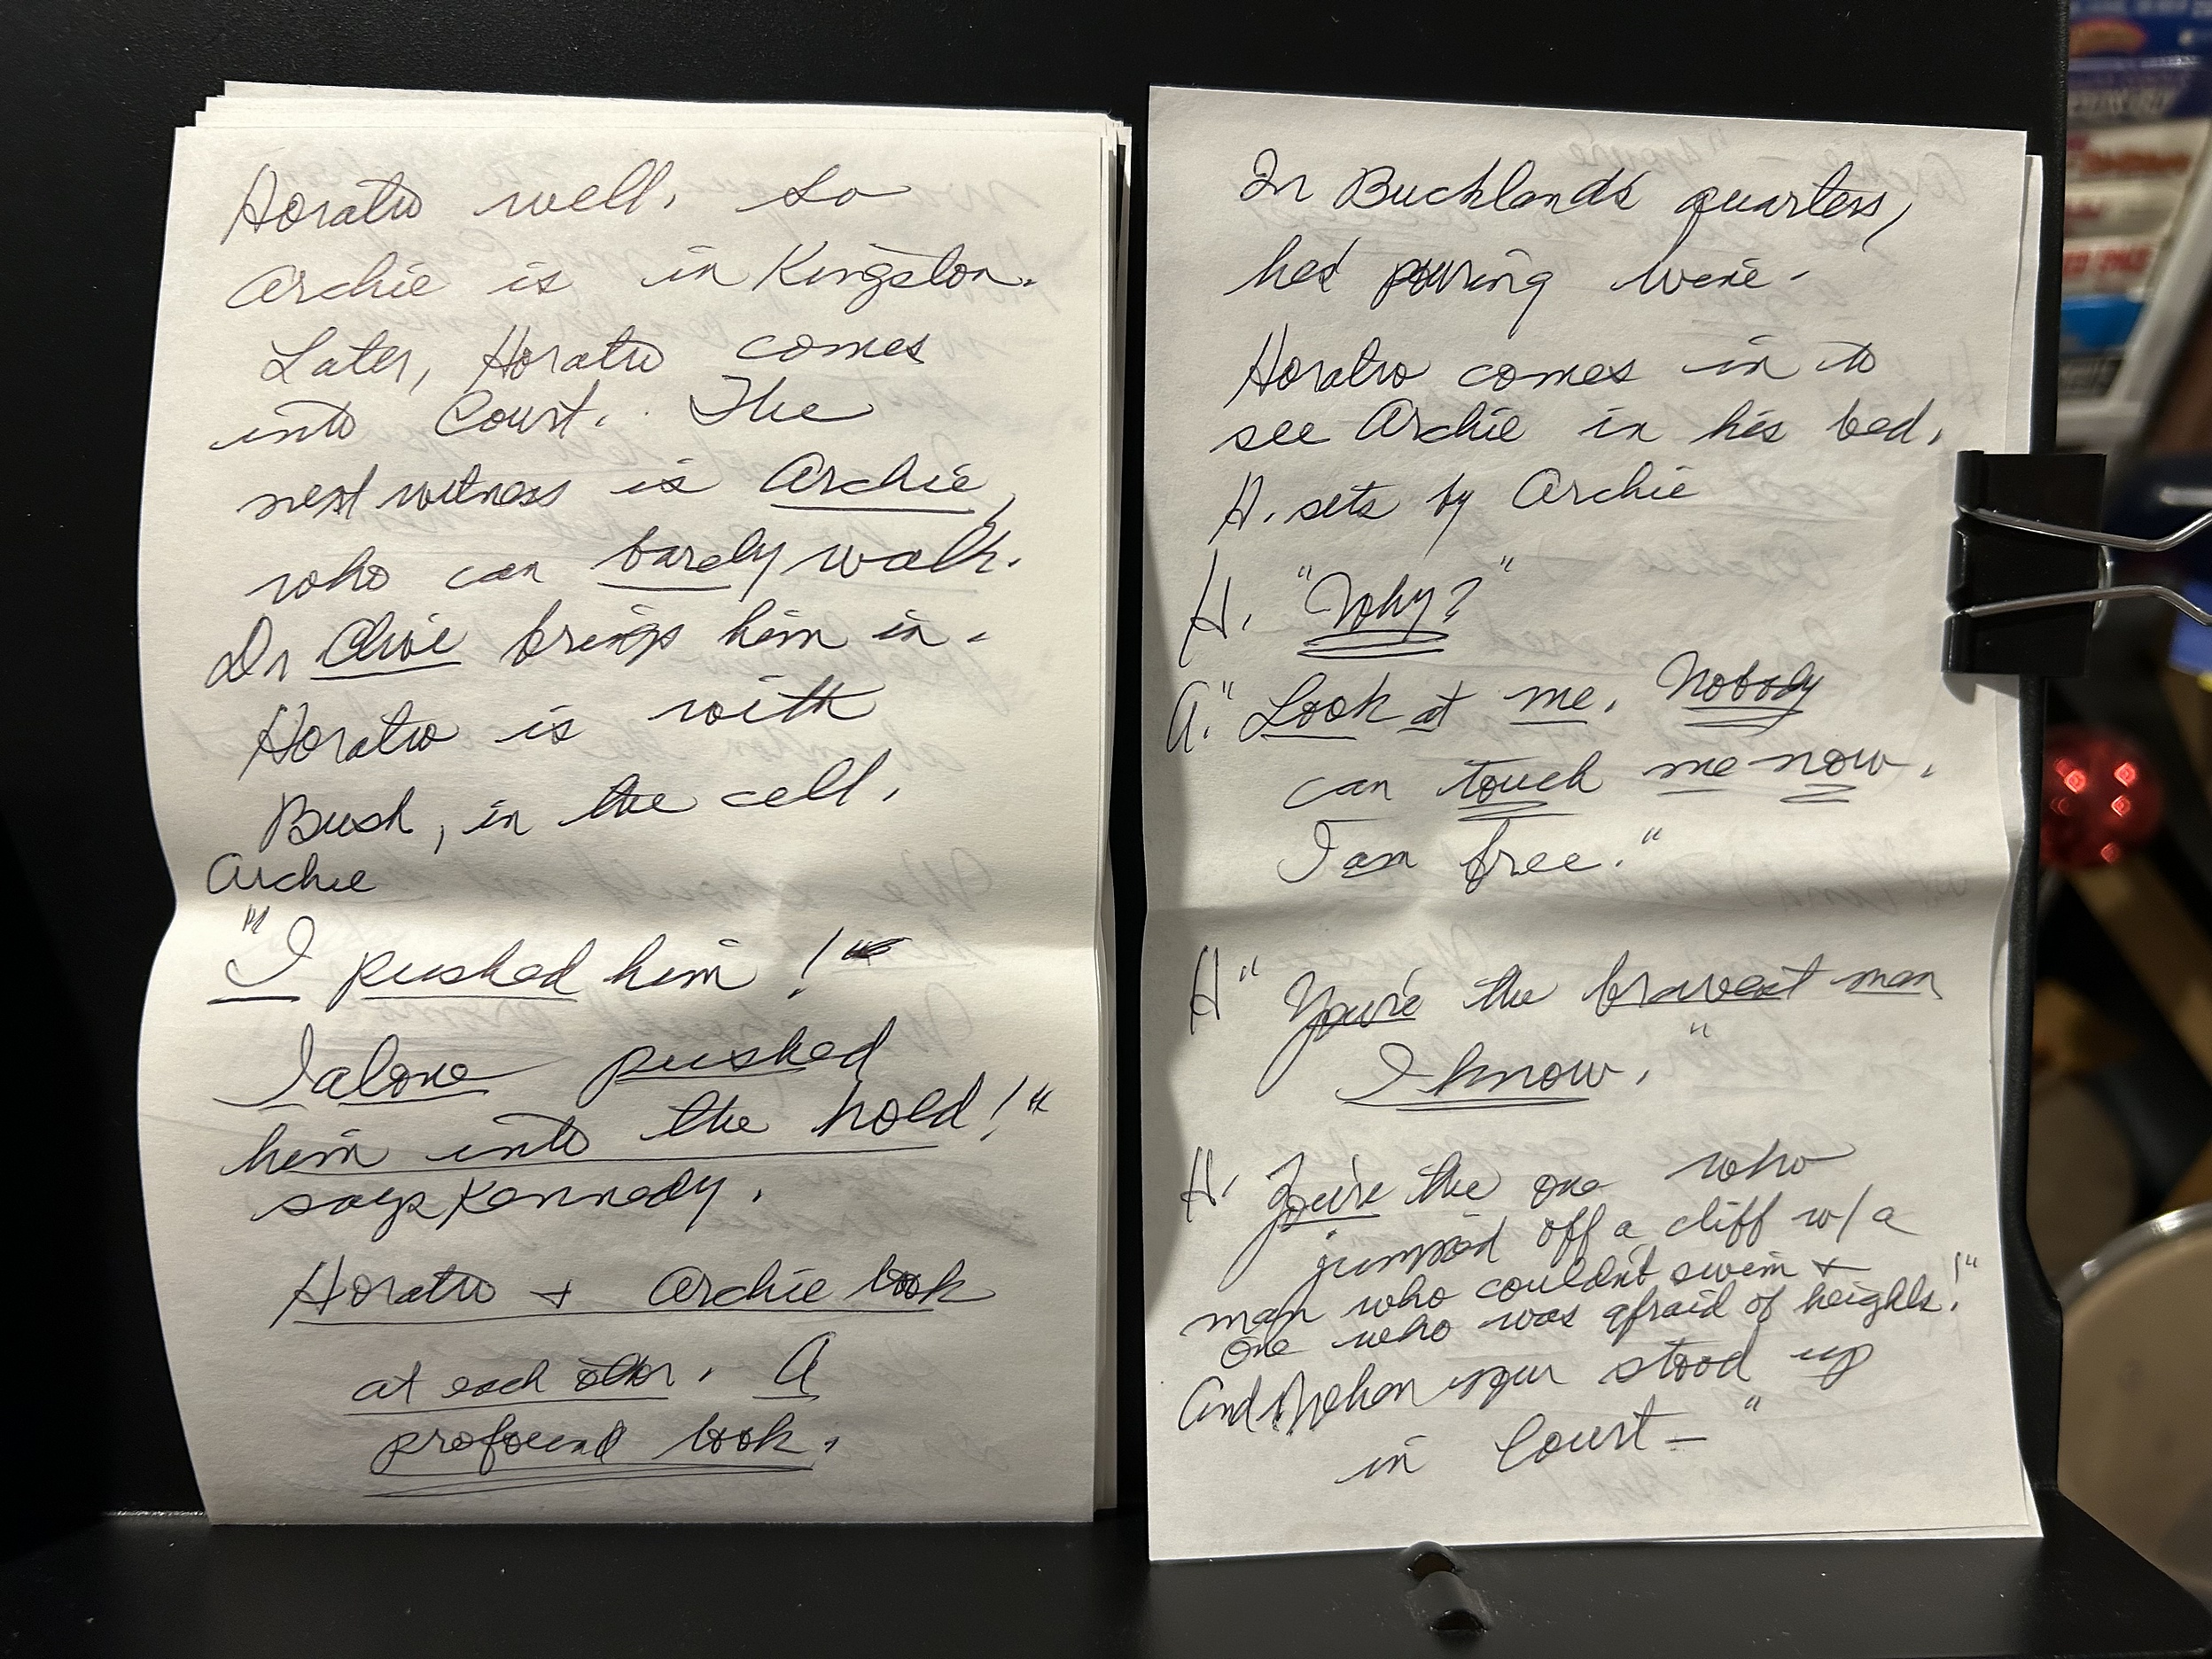 Horatio well. So
Archie is in Kingston.
Later, Horatio comes
into Court. The
next witness is Archie,
who can barely walk.
Dr Clive brings him in.
Horatio is with
Bush, in the cell.
Archie
"I pushed him!"
I alone pushed
him into the hold!"
says Kennedy.
Horatio + Archie look
at each other. A
profound look.
In Buckland's quarters,
he's pouring wine.
Horatio comes in to
see Archie in his bed.
H. sets by Archie
H. "Why?"
A. "Look at me. Nobody
can touch me now.
I am free."
H "You're the bravest man
I know."
H. You're the one who
jumped off a cliff w/ a
man who couldn't swim +
one who was afraid of heights!"
And when you stood up
in Court—"